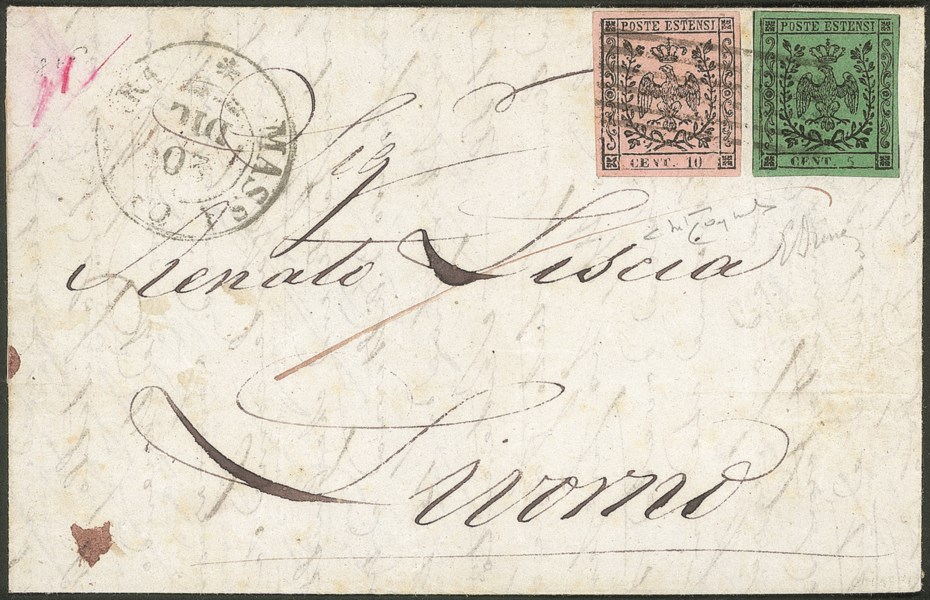 POSTE ESTENSI
CENT. 10
POSTE ESTENSI
CENT. 5
MASSA
DIC
Sig
Renato Liscia
Livorno